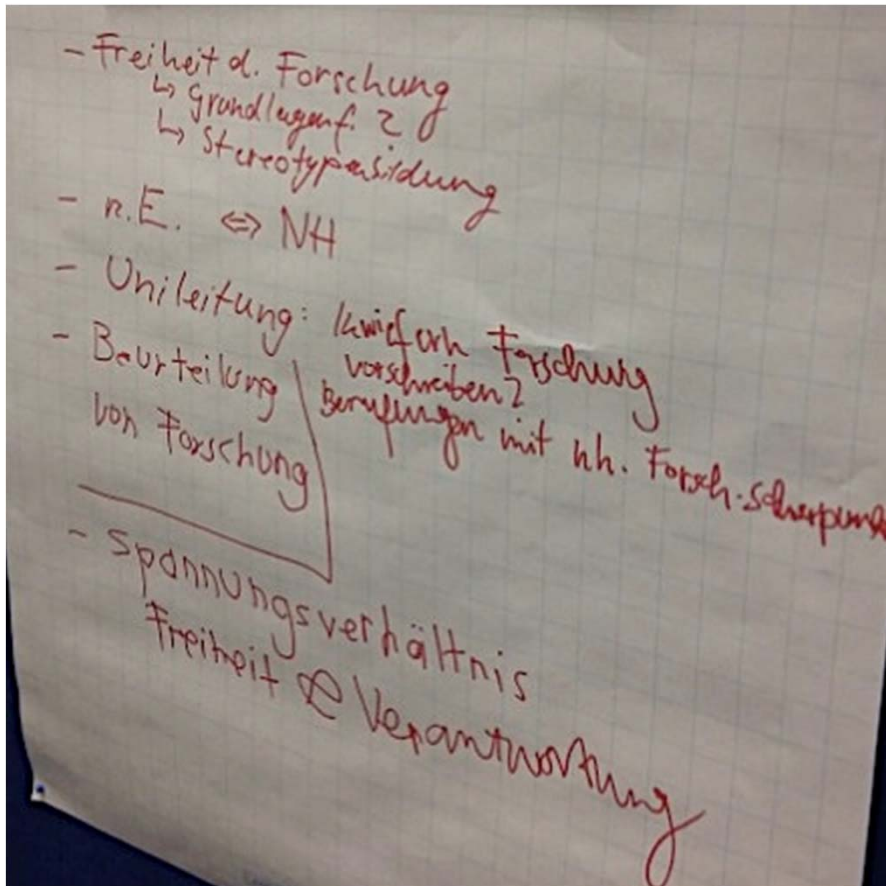 - Freiheit d. Forschung
↳ Grundlagenf. ?
↳ Stereotypenbildung
- n.E. ⇔ NH
- Unileitung: Inwiefern Forschung
vorschreiben?
Berufungen mit nh. Forsch.
- Beurteilung
von Forschung
- Spannungsverhältnis
Freiheit Verantwortung